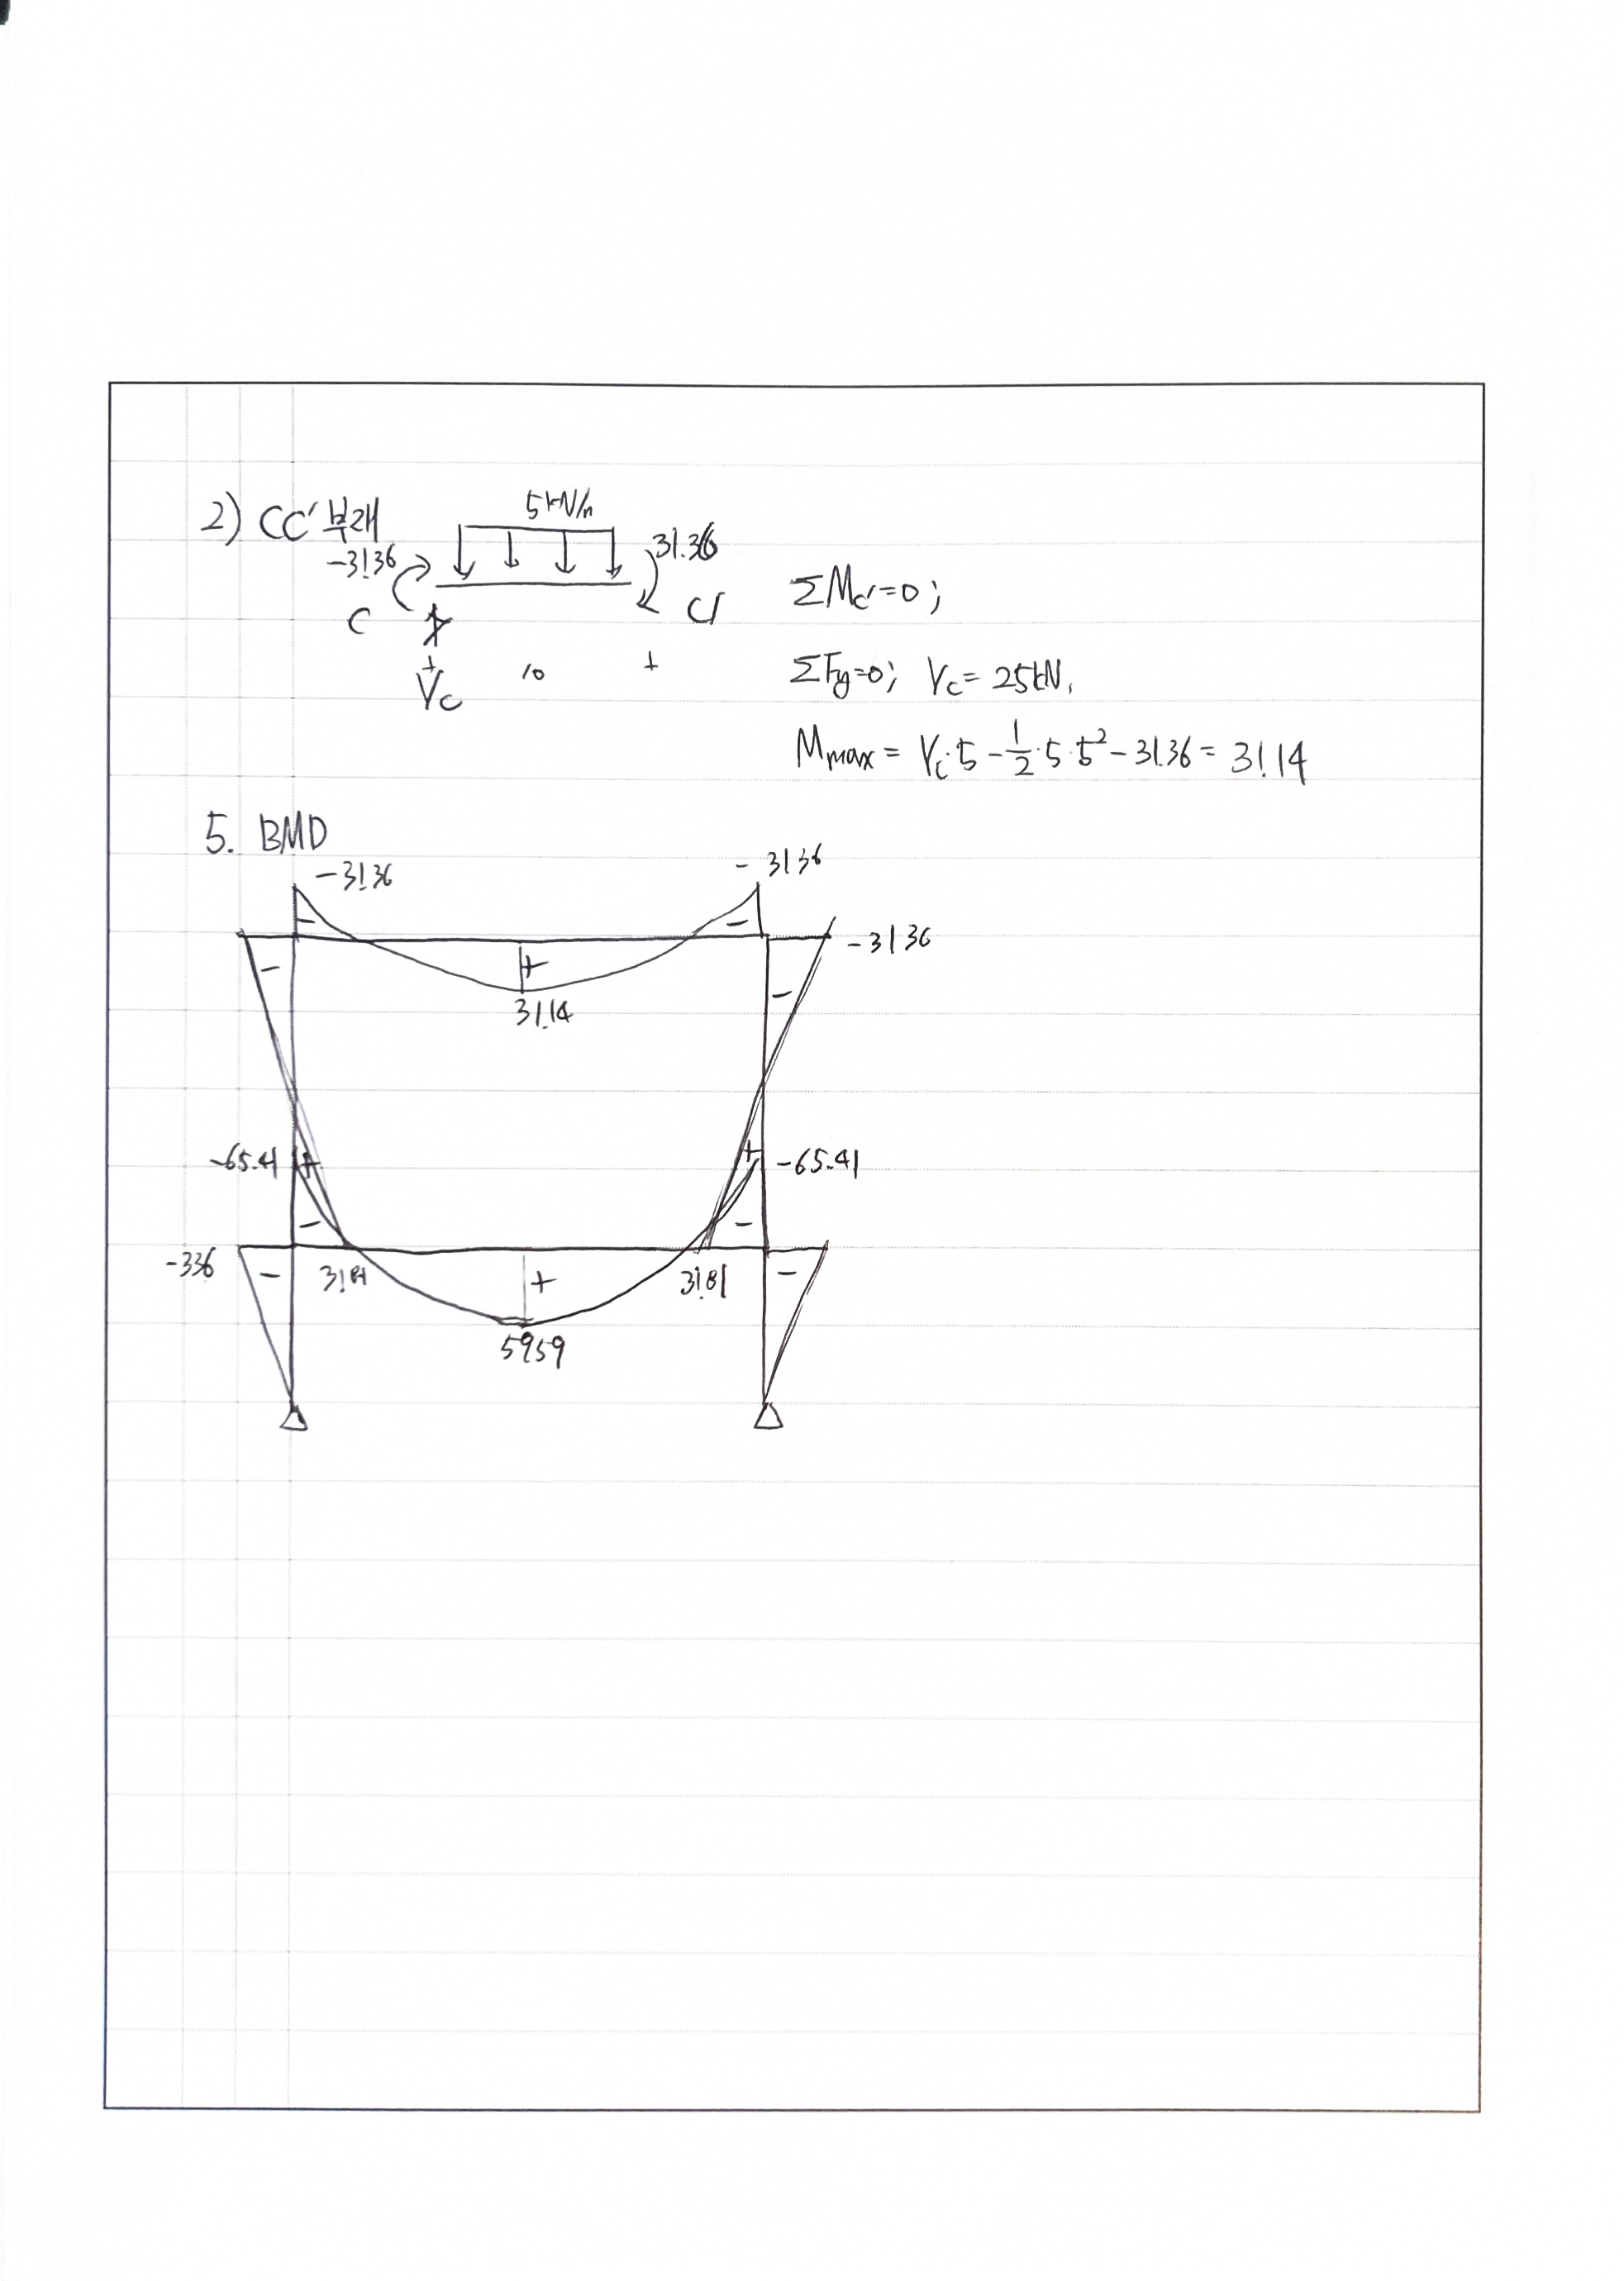 2) CC' 부재
5kN/m
-31.36
31.36
C
C'
V_C
10
ΣM_C'=0;
ΣF_y=0; V_C= 25kN,
M_max = V_C·5 - 1/2·5·5² - 31.36 = 31.14
5. BMD
-31.36
- 31.36
- -
-31.36
- + -
31.14
-65.41 + + -65.41
- -
-33.6 - 31.81 + 31.81 -
59.59